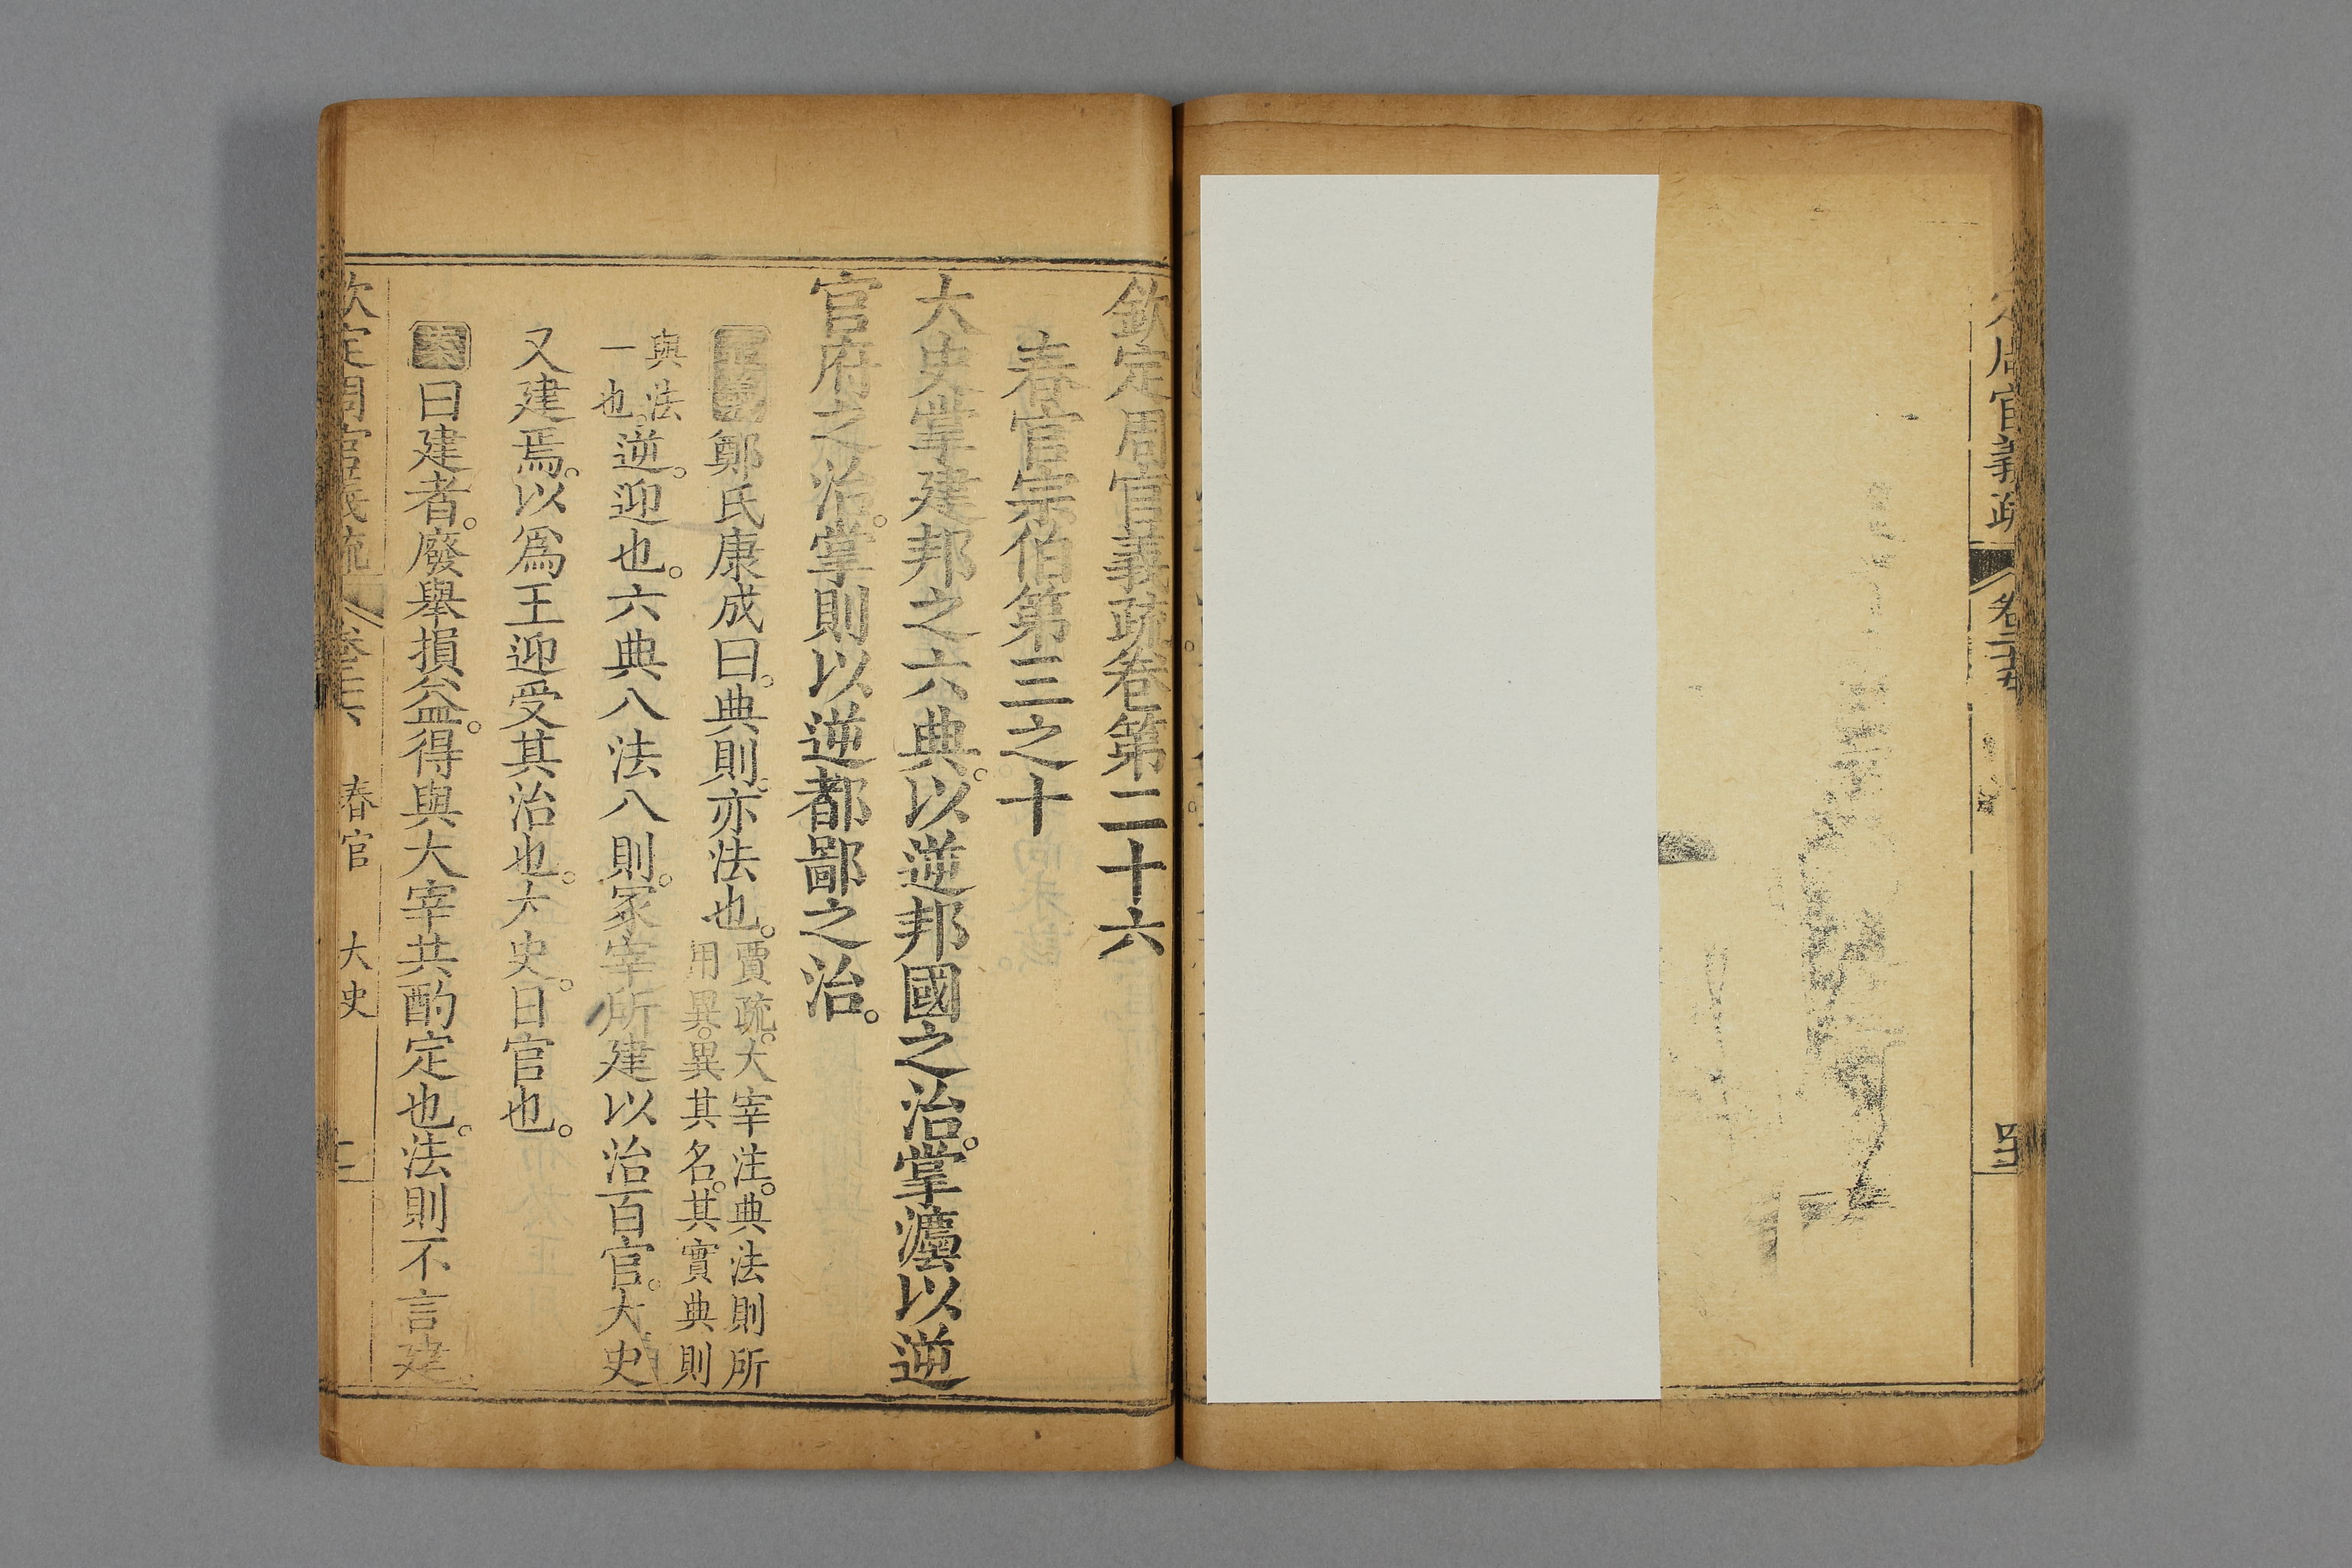 定周官義疏
卷二十五
欽定周官義疏卷第二十六
春官宗伯第三之十
大史掌建邦之六典。以逆邦國之治。掌灋以逆
官府之治。掌則以逆都鄙之治。
正義鄭氏康成曰。典則。亦法也。賈疏。大宰注。典法則所用異。異其名。其實典則
與法一也。逆。迎也。六典八法八則。冢宰所建以治百官。大史
又建焉。以爲王迎受其治也。大史。日官也。
案曰建者。廢舉損益。得與大宰共酌定也。法則不言建。
欽定周官義疏 卷二十六 春官 大史